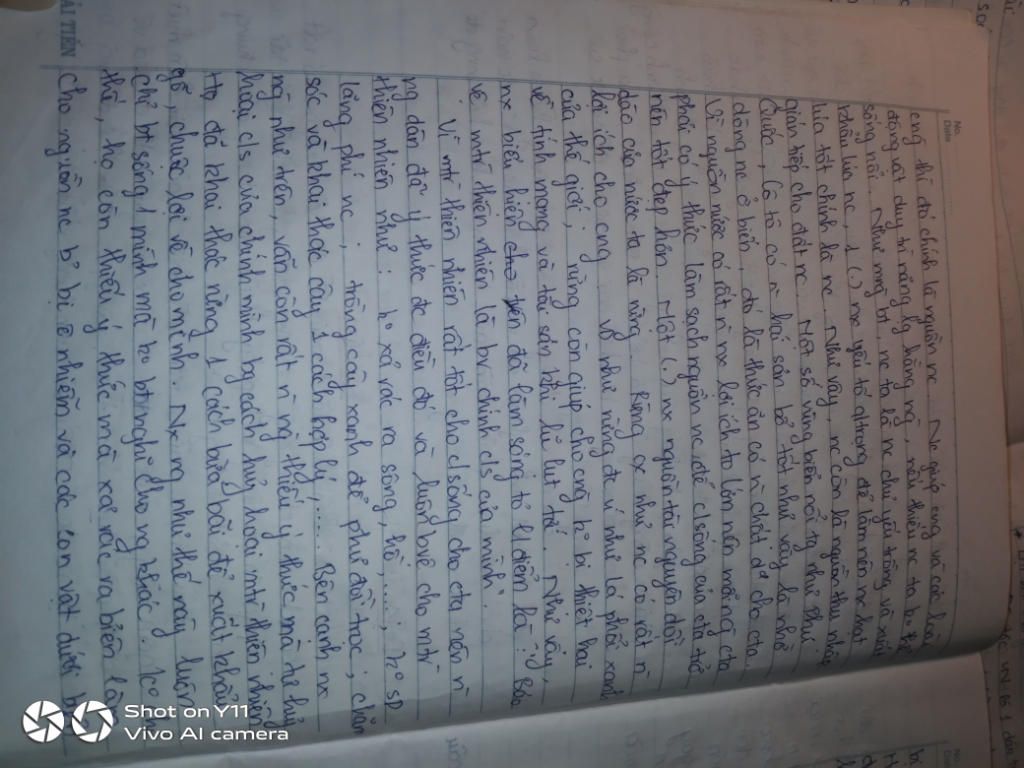 No.
Date
cng thì đó chính là nguồn nc. Nc giúp cng và các loài
động vật duy trì năng lg hàng ng, nếu thiếu nc ta ko thể
sống nổi. Như mng bt, nc ta là nc chủ yếu trồng và xuất
khẩu lúa nc, 1 (.) nx yếu tố qtrọng để làm nên nx hạt
lúa tốt chính là nc. Như vậy, nc còn là nguồn thu nhập
gián tiếp cho đất nc. Một số vùng biển nổi ts như Phú
Quốc, Cô Tô có n hải sản bổ, tốt như vậy là nhờ
dòng nc ở biển, đó là thức ăn có n chất dd cho cta.
Vì nguồn nước có rất n nx lợi ích to lớn nên mỗi ng cta
phải có ý thức làm sạch nguồn nc để c/sống của cta trở
nên tốt đẹp hơn. Một (.) nx nguồn tài nguyên dồi
dào của nước ta là rừng. Rừng cx như nc có rất n
lợi ích cho cng. Vd như rừng đc ví như lá phổi xanh
của thế giới; rừng còn giúp cho cng ko bị thiệt hại
về tính mạng và tài sản bởi lũ lụt tới. Như vậy,
nx biểu hiện trên đã làm sáng tỏ q/điểm là: Bảo
vệ mtr thiên nhiên là bv chính c/s của mình.
Vì mtr thiên nhiên rất tốt cho c/sống cho cta nên n
ng dân đã ý thức đc điều đó và luôn bvệ cho mtr
thiên nhiên như: ko xả rác ra sông, hồ,...; ko sd
lãng phí nc; trồng cây xanh để phủ đồi trọc; chăm
sóc và khai thác cây 1 cách hợp lý;.... Bên cạnh nx
ng như trên, vẫn còn rất n ng thiếu ý thức mà tự huỷ
hoại c/s của chính mình bg cách huỷ hoại mtr thiên nhiên
Họ đã khai thác rừng 1 cách bừa bãi để xuất khẩu
gỗ, chuộc lợi về cho mình. Nx ng như thế này luôn
chỉ bt sống 1 mình mà ko bt nghĩ cho ng khác. Ko
thế, họ còn thiếu ý thức mà xả rác ra biển làm
cho nguồn nc bị ô nhiễm và các con vật dưới b
HẢI TIẾN
Shot on Y11
Vivo AI camera